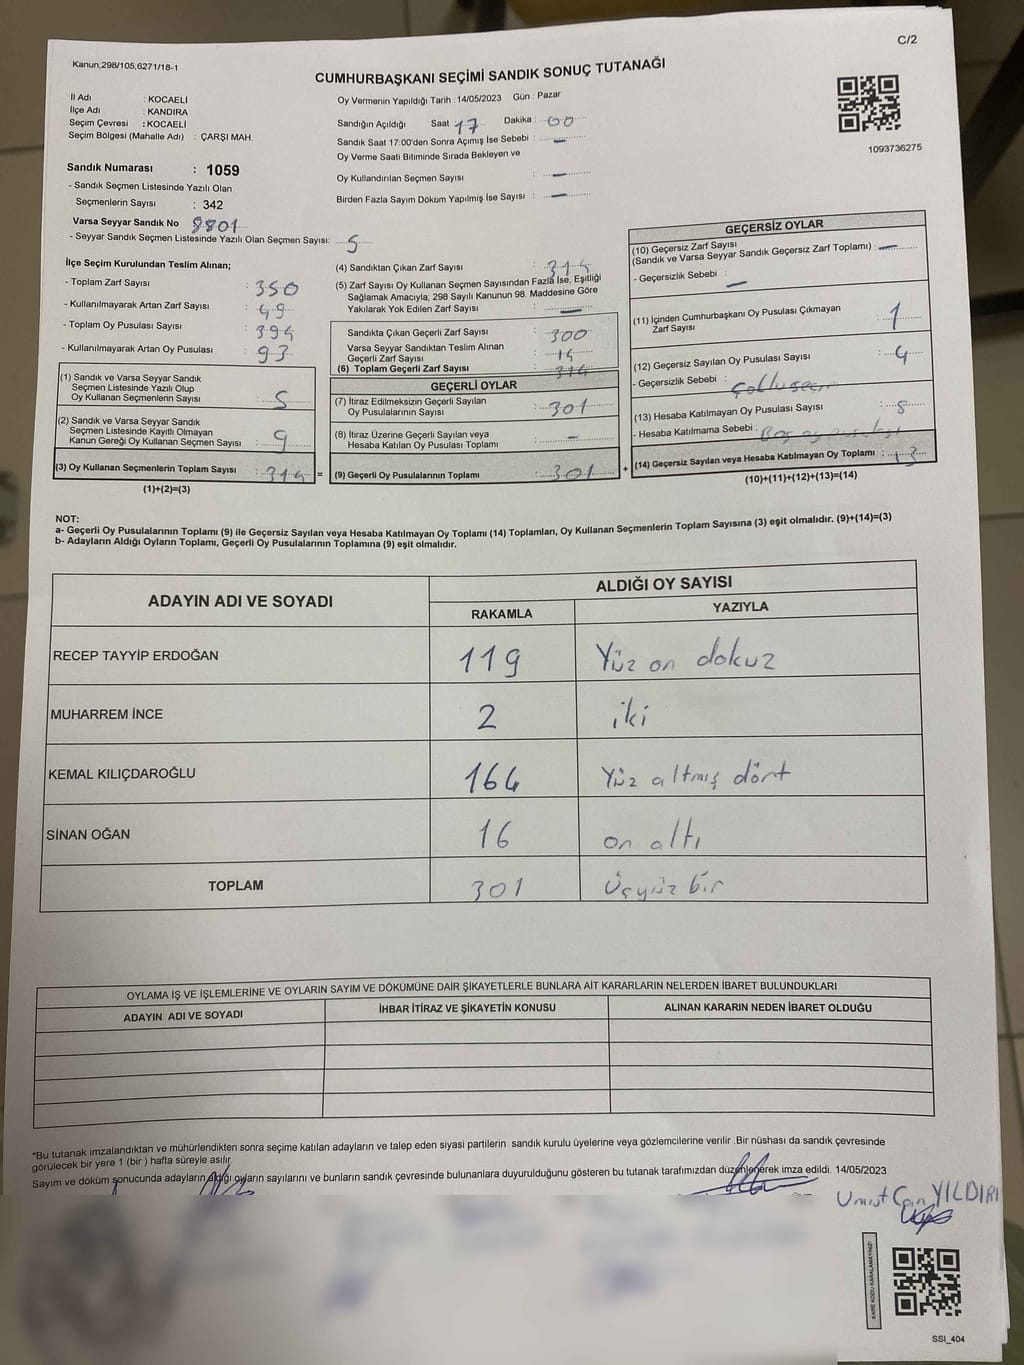 C/2
Kanun,298/105,6271/18-1
CUMHURBAŞKANI SEÇİMİ SANDIK SONUÇ TUTANAĞI
İl Adı : KOCAELİ
İlçe Adı : KANDIRA
Seçim Çevresi : KOCAELİ
Seçim Bölgesi (Mahalle Adı) : ÇARŞI MAH.
Oy Vermenin Yapıldığı Tarih : 14/05/2023 Gün : Pazar
Sandığın Açıldığı Saat 17 Dakika : 00
Sandık Saat 17:00'den Sonra Açımış İse Sebebi : —
Oy Verme Saati Bitiminde Sırada Bekleyen ve
Oy Kullandırılan Seçmen Sayısı : —
Birden Fazla Sayım Döküm Yapılmış İse Sayısı : —
1093736275
Sandık Numarası : 1059
- Sandık Seçmen Listesinde Yazılı Olan
Seçmenlerin Sayısı : 342
Varsa Seyyar Sandık No 8801
- Seyyar Sandık Seçmen Listesinde Yazılı Olan Seçmen Sayısı: 5
İlçe Seçim Kurulundan Teslim Alınan;
- Toplam Zarf Sayısı : 350
- Kullanılmayarak Artan Zarf Sayısı : 49
- Toplam Oy Pusulası Sayısı : 394
- Kullanılmayarak Artan Oy Pusulası : 93
(1) Sandık ve Varsa Seyyar Sandık
Seçmen Listesinde Yazılı Olup
Oy Kullanan Seçmenlerin Sayısı : 5
(2) Sandık ve Varsa Seyyar Sandık
Seçmen Listesinde Kayıtlı Olmayan
Kanun Gereği Oy Kullanan Seçmen Sayısı : 9
(3) Oy Kullanan Seçmenlerin Toplam Sayısı : 314 =
(1)+(2)=(3)
(4) Sandıktan Çıkan Zarf Sayısı : 314
(5) Zarf Sayısı Oy Kullanan Seçmen Sayısından Fazla İse, Eşitliği
Sağlamak Amacıyla; 298 Sayılı Kanunun 98. Maddesine Göre
Yakılarak Yok Edilen Zarf Sayısı : —
Sandıkta Çıkan Geçerli Zarf Sayısı : 300
Varsa Seyyar Sandıktan Teslim Alınan
Geçerli Zarf Sayısı : 14
(6) Toplam Geçerli Zarf Sayısı : 314
GEÇERLİ OYLAR
(7) İtiraz Edilmeksizin Geçerli Sayılan
Oy Pusulalarının Sayısı : 301
(8) İtiraz Üzerine Geçerli Sayılan veya
Hesaba Katılan Oy Pusulası Toplamı : —
(9) Geçerli Oy Pusulalarının Toplamı : 301 +
GEÇERSİZ OYLAR
(10) Geçersiz Zarf Sayısı
(Sandık ve Varsa Seyyar Sandık Geçersiz Zarf Toplamı) : —
- Geçersizlik Sebebi : —
(11) İçinden Cumhurbaşkanı Oy Pusulası Çıkmayan
Zarf Sayısı : 1
(12) Geçersiz Sayılan Oy Pusulası Sayısı : 4
- Geçersizlik Sebebi :
(13) Hesaba Katılmayan Oy Pusulası Sayısı : 8
- Hesaba Katılmama Sebebi : Boş oy pusulası
(14) Geçersiz Sayılan veya Hesaba Katılmayan Oy Toplamı : 13
(10)+(11)+(12)+(13)=(14)
NOT:
a- Geçerli Oy Pusulalarının Toplam (9) ile Geçersiz Sayılan veya Hesaba Katılmayan Oy Toplamı (14) Toplamları, Oy Kullanan Seçmenlerin Toplam Sayısına (3) eşit olmalıdır. (9)+(14)=(3)
b- Adayların Aldığı Oyların Toplamı, Geçerli Oy Pusulalarının Toplamına (9) eşit olmalıdır.
ADAYIN ADI VE SOYADI ALDIĞI OY SAYISI
RAKAMLA YAZIYLA
RECEP TAYYİP ERDOĞAN 119 Yüz on dokuz
MUHARREM İNCE 2 iki
KEMAL KILIÇDAROĞLU 164 Yüz altmış dört
SİNAN OĞAN 16 on altı
TOPLAM 301 Üçyüz bir
OYLAMA İŞ VE İŞLEMLERİNE VE OYLARIN SAYIM VE DÖKÜMÜNE DAİR ŞİKAYETLERLE BUNLARA AİT KARARLARIN NELERDEN İBARET BULUNDUKLARI
ADAYIN ADI VE SOYADI İHBAR İTİRAZ VE ŞİKAYETİN KONUSU ALINAN KARARIN NEDEN İBARET OLDUĞU
*Bu tutanak imzalandıktan ve mühürlendikten sonra seçime katılan adayların ve talep eden siyasi partilerin sandık kurulu üyelerine veya gözlemcilerine verilir .Bir nüshası da sandık çevresinde
görülecek bir yere 1 (bir ) hafta süreyle asılır.
Sayım ve döküm sonucunda adayların aldığı oyların sayılarını ve bunların sandık çevresinde bulunanlara duyurulduğunu gösteren bu tutanak tarafımızdan düzenlenerek imza edildi. 14/05/2023
Umut Can YILDIRI
KARE KODU KARALAMAYINIZ!
SSI_404